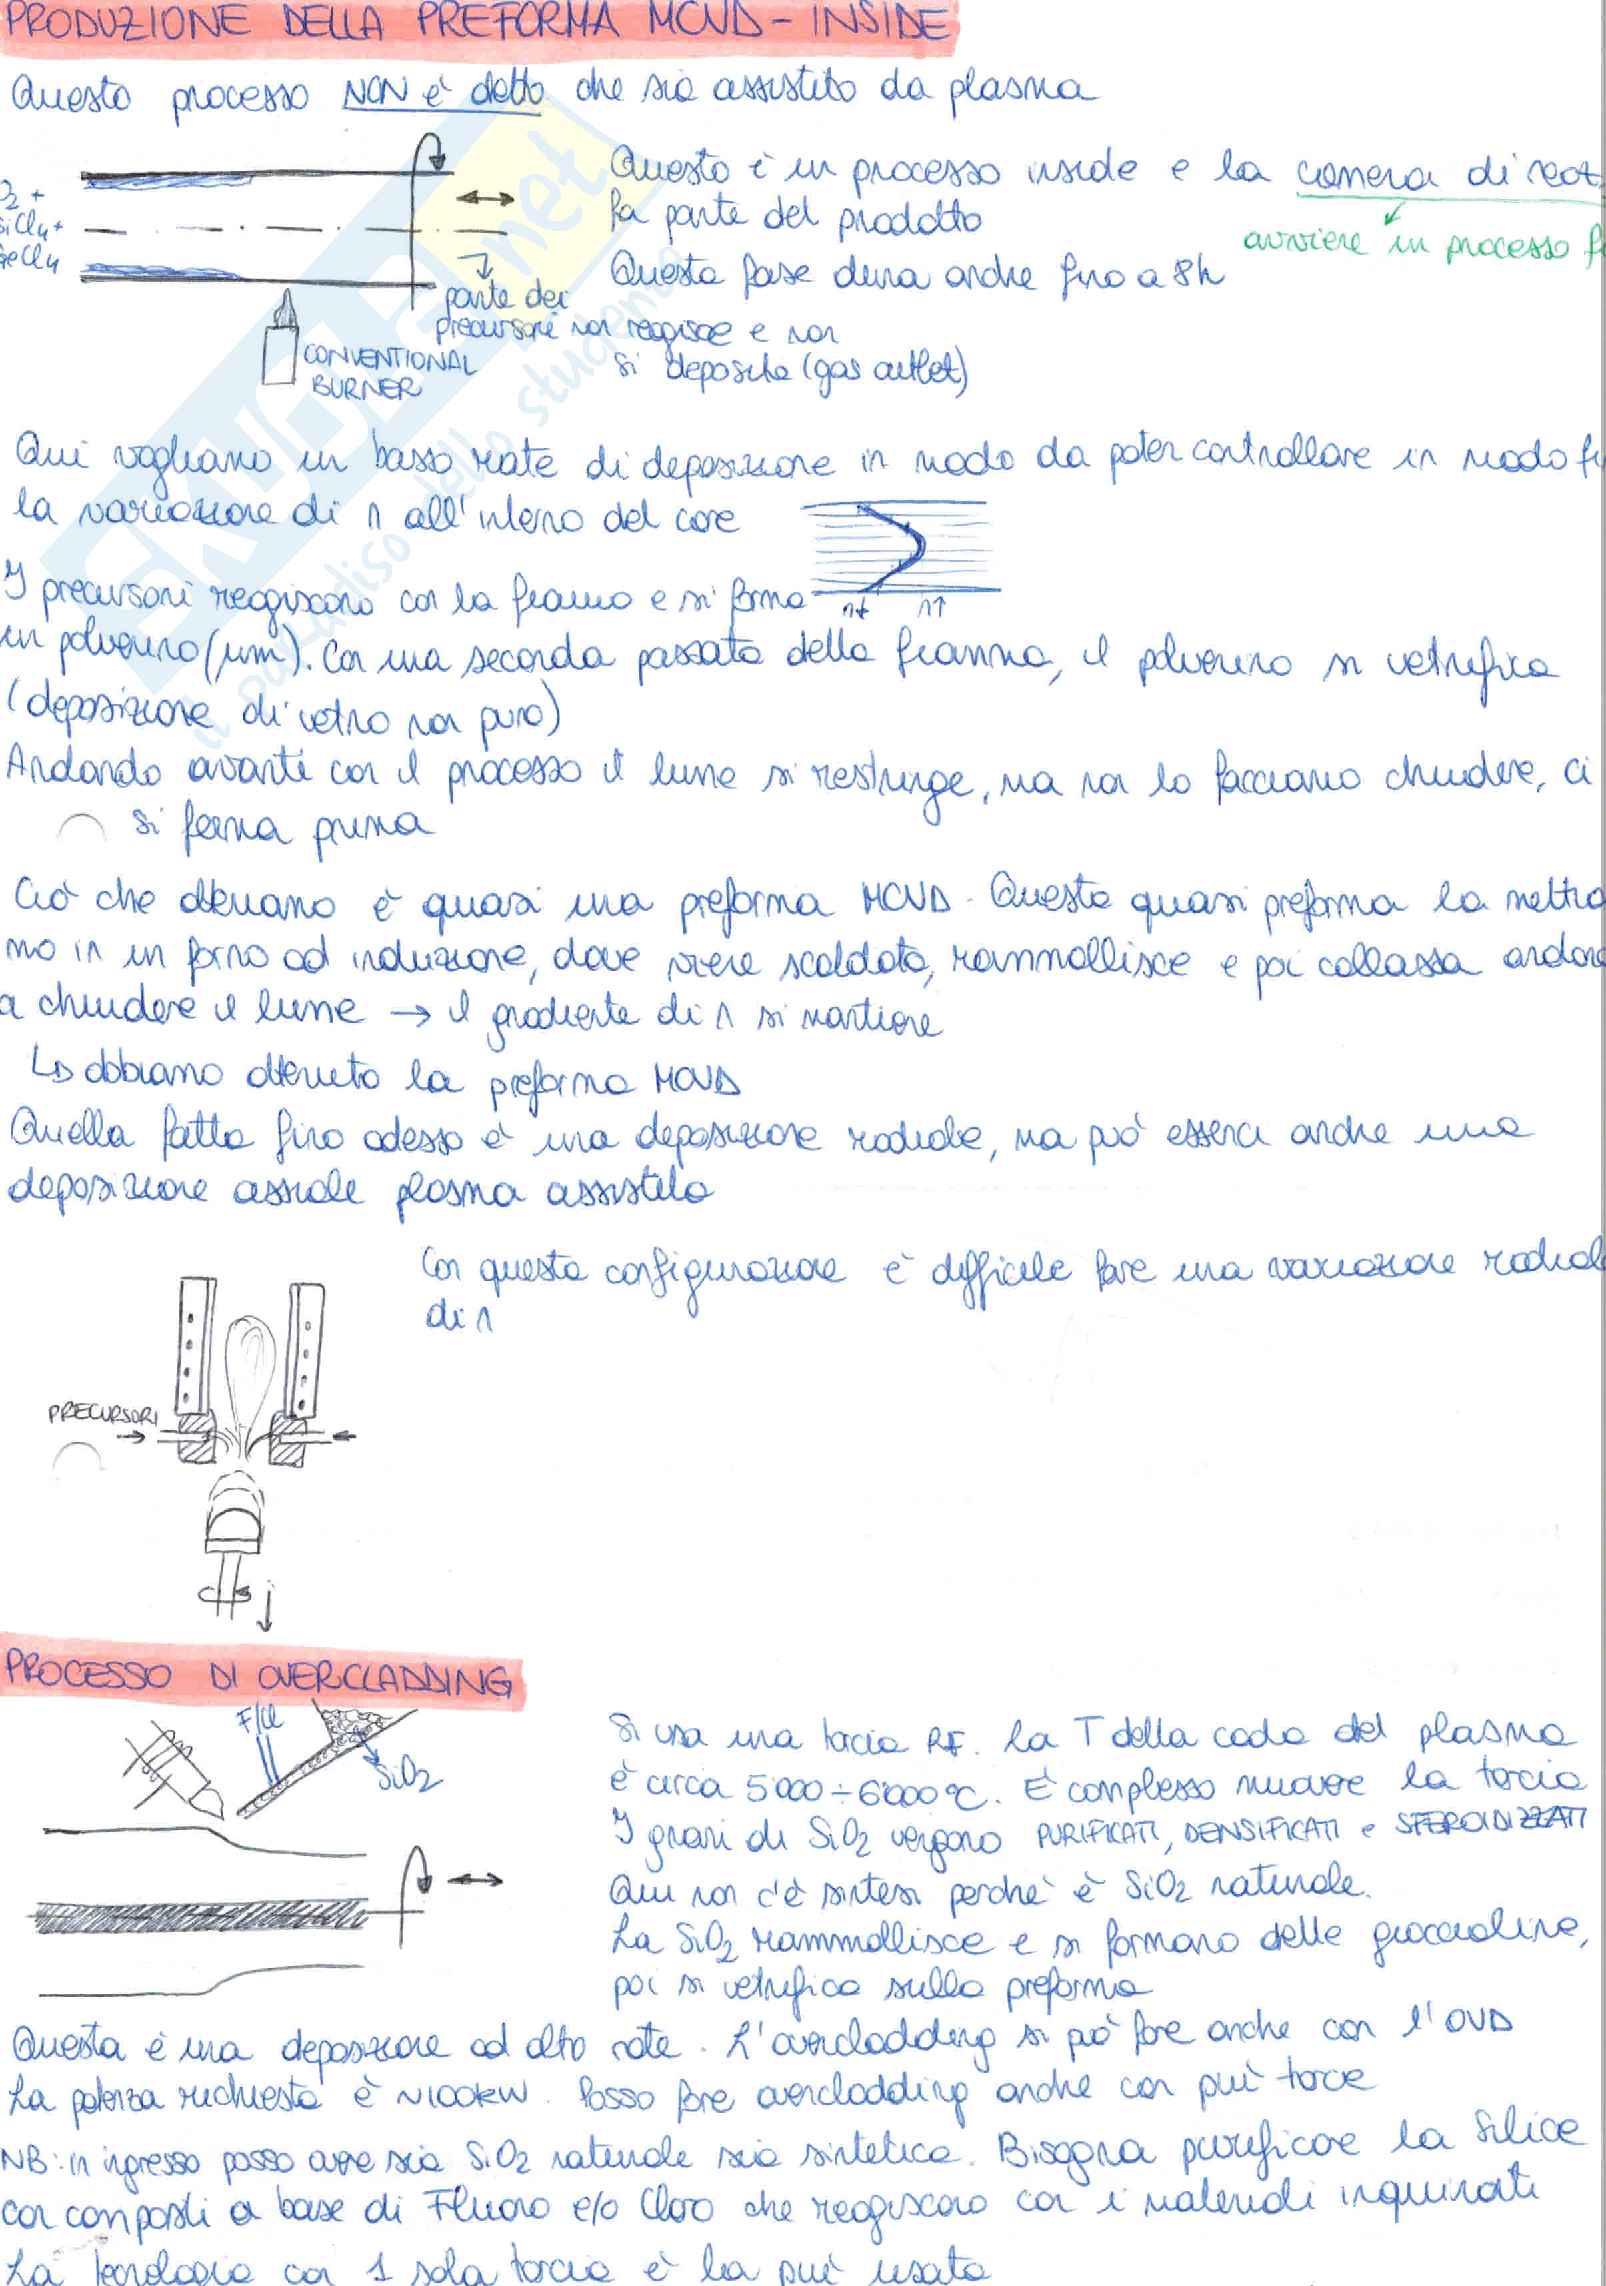 PRODUZIONE DELLA PREFORMA MCVD - INSIDE
Questo processo NON è detto che sia assistito da plasma
Questo è un processo inside e la camera di reaz
fa parte del prodotto
avviene un processo
Questa fase dura anche fino a 8h
O2 +
SiCl4 +
GeCl4
parte dei
precursori non reagisce e non
si deposita (gas outlet)
CONVENTIONAL
BURNER
Qui vogliamo un basso rate di deposizione in modo da poter controllare in modo
la variazione di n all'interno del core
I precursori reagiscono con la fiamma e si forma
n↓ n↑
un polverino (μm). Con una seconda passata della fiamma, il polverino si vetrifica
(deposizione di vetro non puro)
Andando avanti con il processo il lume si restringe, ma non lo facciamo chiudere, ci
si ferma prima
Ciò che otteniamo è quasi una preforma MCVD. Questa quasi preforma la mettia
mo in un forno ad induzione, dove viene scaldata, rammollisce e poi collassa andando
a chiudere il lume → il gradiente di n si mantiene
↳ abbiamo ottenuto la preforma MCVD
Quella fatta fino adesso è una deposizione radiale, ma può esserci anche una
deposizione assiale plasma assistita
Con questa configurazione è difficile fare una variazione radiale
di n
PRECURSORI
PROCESSO DI OVERCLADDING
F/Cl
SiO2
Si usa una torcia RF. La T della coda del plasma
è circa 5000÷6000°C. È complesso muovere la torcia
I grani di SiO2 vengono PURIFICATI, DENSIFICATI e SFEROIDIZZATI
Qui non c'è sintesi perché è SiO2 naturale.
La SiO2 rammollisce e si formano delle goccioline,
poi si vetrifica sulla preforma
Questa è una deposizione ad alto rate. L'overcladding si può fare anche con l'OVD
La potenza richiesta è ~100kW. Posso fare overcladding anche con più torce
NB: in ingresso posso avere sia SiO2 naturale sia sintetica. Bisogna purificare la Silice
con composti a base di Fluoro e/o Cloro che reagiscono con i materiali inquinanti
La tecnologia con 1 sola torcia è la più usata
SKUOLA.net
il paradiso dello studente